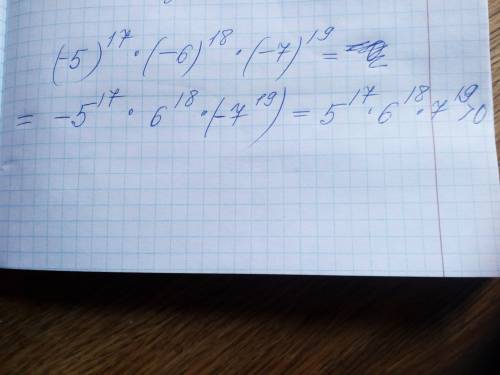 (-5)¹⁷ · (-6)¹⁸ · (-7)¹⁹ =
= -5¹⁷ · 6¹⁸ · (-7¹⁹) = 5¹⁷ · 6¹⁸ · 7¹⁹ > 0